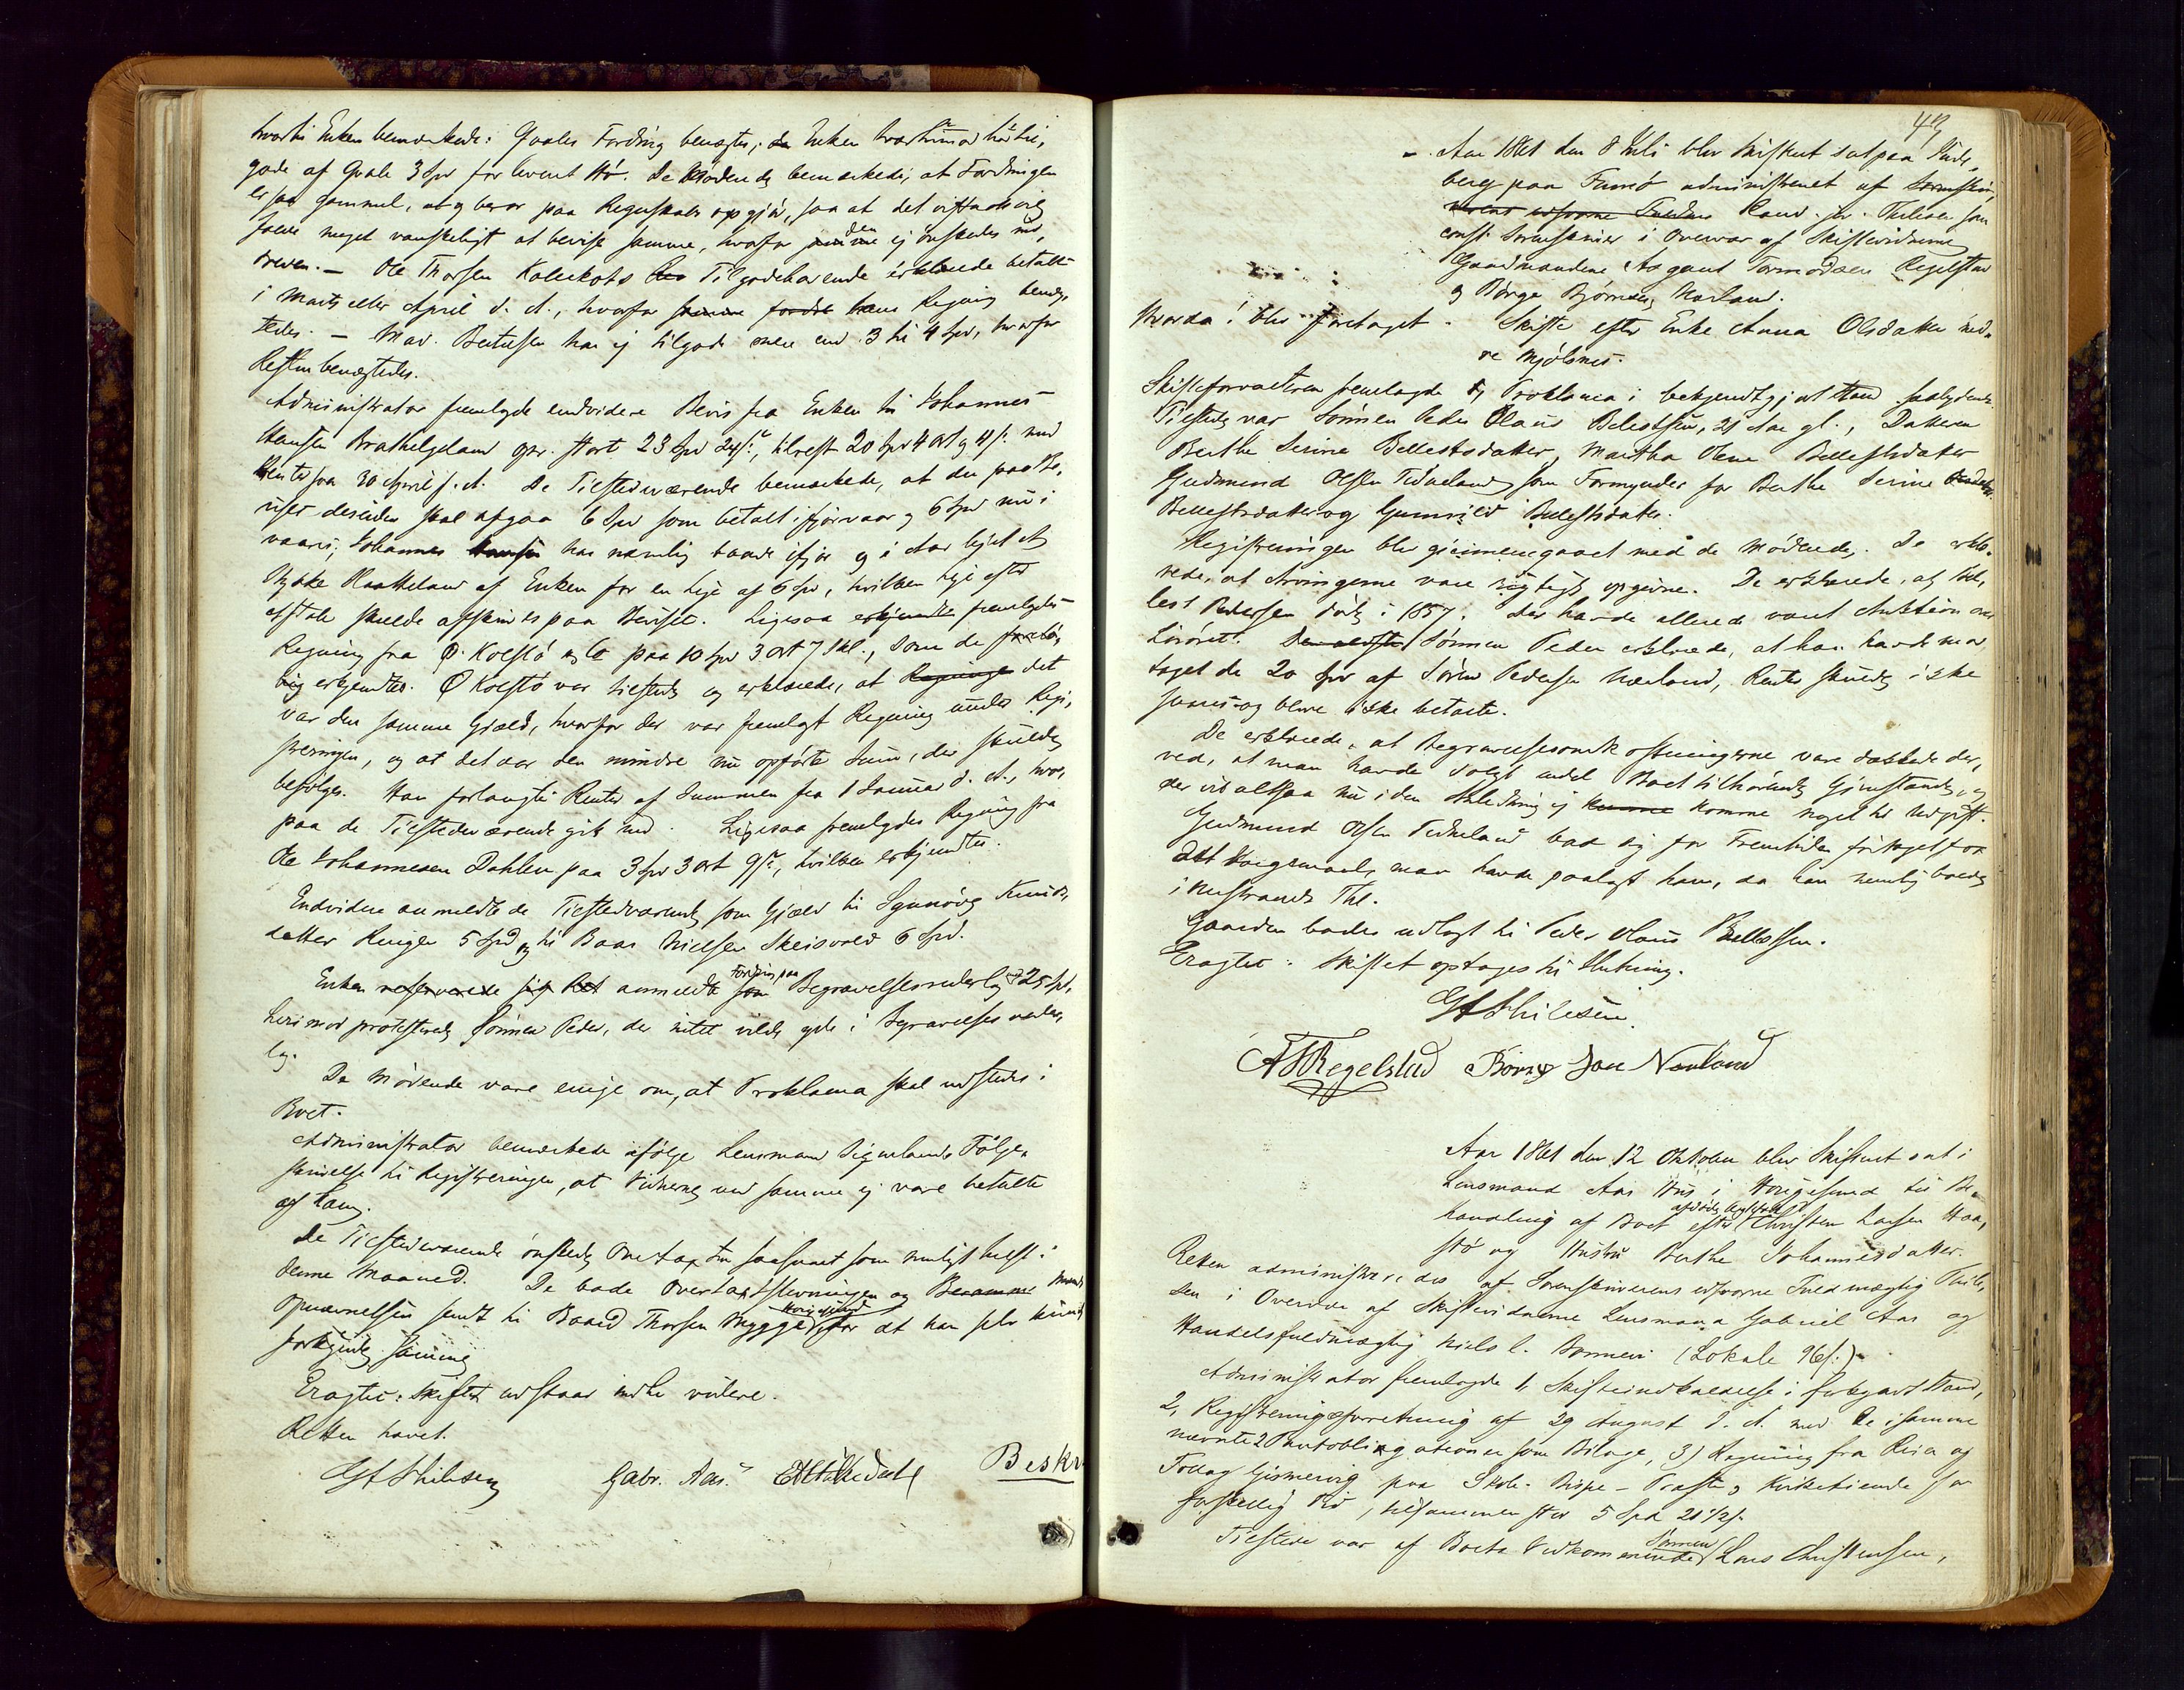 hvortil Enken bemærkede: Gvales Fordring benægtes, da Enken hvertimod har til-
gode af Gvale 3 Spd for leveret Hö. De Mødende bemærkede, at Fordringen
er saa gammel, at og beror paa Regnskabs opgjör, saa at det vistnok vil
falde meget vanskeligt at bevise samme, hvorfor den ej önskedes ind-
dreven. — Ole Thorsen Kolekots Tilgodehavende erklærede betalt
i Marts eller April d. A., hvorfor hans Regning benæg-
tedes. — Mad. Bertelsen har ej tilgode mere end 3 til 4 Spd, hvorfor
Resten benægtedes.
Administrator fremlagde endvidere Bevis fra Enken til Johannes
Hansen Brathelgeland opr. stort 23 Spd 24 s., tilrest 20 Spd 4 ort og 4 s. med
Renter fra 30 April f. A. De Tilstedeværende bemærkede, at der paa Be-
viset desuden skal afgaa 6 Spd som betalt ifjorvaar og 6 Spd nu i
vaares; Johannes Hansen har nemlig baade ifjor og i Aar lejet et
Stykke Haakeland af Enken for en Leje af 6 Spd, hvilken Leje efter
Aftale skulde afskrives paa Beviset. Ligesaa erkjendte fremlagdes
Regning fra Ø. Kolstø paa 10 Spd 3 Ort 7 skl., som de forelø-
big erkjendte. Ø Kolstø var tilstede og erklærede, at Regninge det
var den samme Gjæld, hvorfor der var fremlagt Regning under Regi-
streringen, og at det var den mindre nu opførte Sum, der skulde
befølges. Han forlangte Renter af Summen fra 1 Januar d. A., hvor-
paa de Tilstedeværende gik ind. Ligesaa fremlagdes Regning fra
Ole Johannesen Dahlen paa 3 Spd 3 ort 9 s., hvilken erkjendtes.
Endvidere anmeldte de Tilstedeværende som Gjæld til Synnöve Knuds-
datter Ringen 5 Spd og til Baar Nielsen Skeisvold 6 Spd.
Enken reserverede sig Ret anmeldte Fordring paa som Begravelsesuderlag 25 Spd,
herimod protesterede Sønnen Peder, der intet vilde yde i Begravelsesuder-
lag.
De Mødende vare enige om, at Proklama skal udstedes i
Boet.
Administrator bemærkede ifølge Lensmand Følge-
skrivelse til Registreringen, at Vidnerne ved samme ej vare betalte
af ham.
De Tilstedeværende ønskede Overtaxten saasnart som muligt helst i
denne Maaned. De bade Overtaxtstevningen og Beramme
Opnævnelsen sendt til Baard Thorsen Mygge Haugesund, for at han selv kunde
forkynde samme
Eragtet: Skiftet udstaar indtil videre.
Retten hævet.
G A Thilesen Gabr. Aas. Beskr
47
Aar 1861 den 8 Juli blev Skifteret sat paa
berg paa administreret af Sorenskri-
verens edsvorne Cand. jur. Thilesen som
const. Sorenskriver i Overvær af Skiftevidnerne
Gaardmændene Asgaut Tormodsen Regelstad
og Børge Bjørnsen Norland.
Hvorda! blev foretaget. Skifte efter Enke Anna Olsdatter ned-
re Mjølsnes.
Skifteforvalteren fremlagde 1, Proklama i bekjendtgjort Stand saalydende
Tilstede var Sønnen Peder Olaus Bellestsen, 21 Aar gl., Datteren
Berthe Serine Bellestsdatter, Martha Olene Bellestsdatter
Gudmund Olsen Tednland som Formynder for Berthe Serine
Bellestsdatter og Gunnild Bellestsdatter.
Registreringen blev gjennemgaaet med de Mødende. De erklæ-
rede, at Arvingerne vare rigtigt opgivne. De erklærede, at Bel-
lest Pedersen døde i 1857. Der havde allerede været Auktion over
Løsöret. Den ældste Sønnen Peder erklærede, at han havde mod-
taget de 20 Spd af Sören Pedersen Norland, Renter skulde ikke
svares og bleve ikke betalte.
De erklærede, at Begravelsesomkostningerne vare dækkede der-
ved, at man havde solgt endel Boet tilhørende Gjenstande, og
der vil altsaa nu i den Anledning ej kunne komme noget til Udgift.
Gudmund Olsen Tedneland bad sig for Fremtiden fritaget for
det Værgemaal, man havde paalagt ham, da han nemlig boede
i Thl.
Gaarden bades udlagt til Peder Olaus Bellessen.
Eragtet: Skiftet optages til Slutning.
G A Thilesen.
A T Regelstad Börge Jon Norland
Aar 1861 den 12 Oktober blev Skifteret sat i
Lensmand Aas Hus i Haugesund til Be-
handling af Boet efter afdøde Christen Larsen Haa-
stø og Hustru Berthe Johannesdatter.
Retten administreredes af Sorenskriverens edsvorne Fuldmægtig Thile-
sen i Overvær af Skiftevidnerne Lensmand Gabriel Aas og
Handelsfuldmægtig Niels C. Bonnevi (Lokale 96 s.).
Administrator fremlagde 1, Skifteindkaldelse i forkyndt Stand,
2, Registreringsforretning af 29 August d. A. med de i samme
nævnte 2 Pantobligationer som Bilage, 3) Regning fra Reia og
Tollag Gismervig paa Skole- Bispe- Præste og Kirketiende for
forskjellig Tid, tilsammen stor 5 Spd 21 1/2 s.
Tilstede var af Boets Vedkommende Sønnen Lars Christensen,